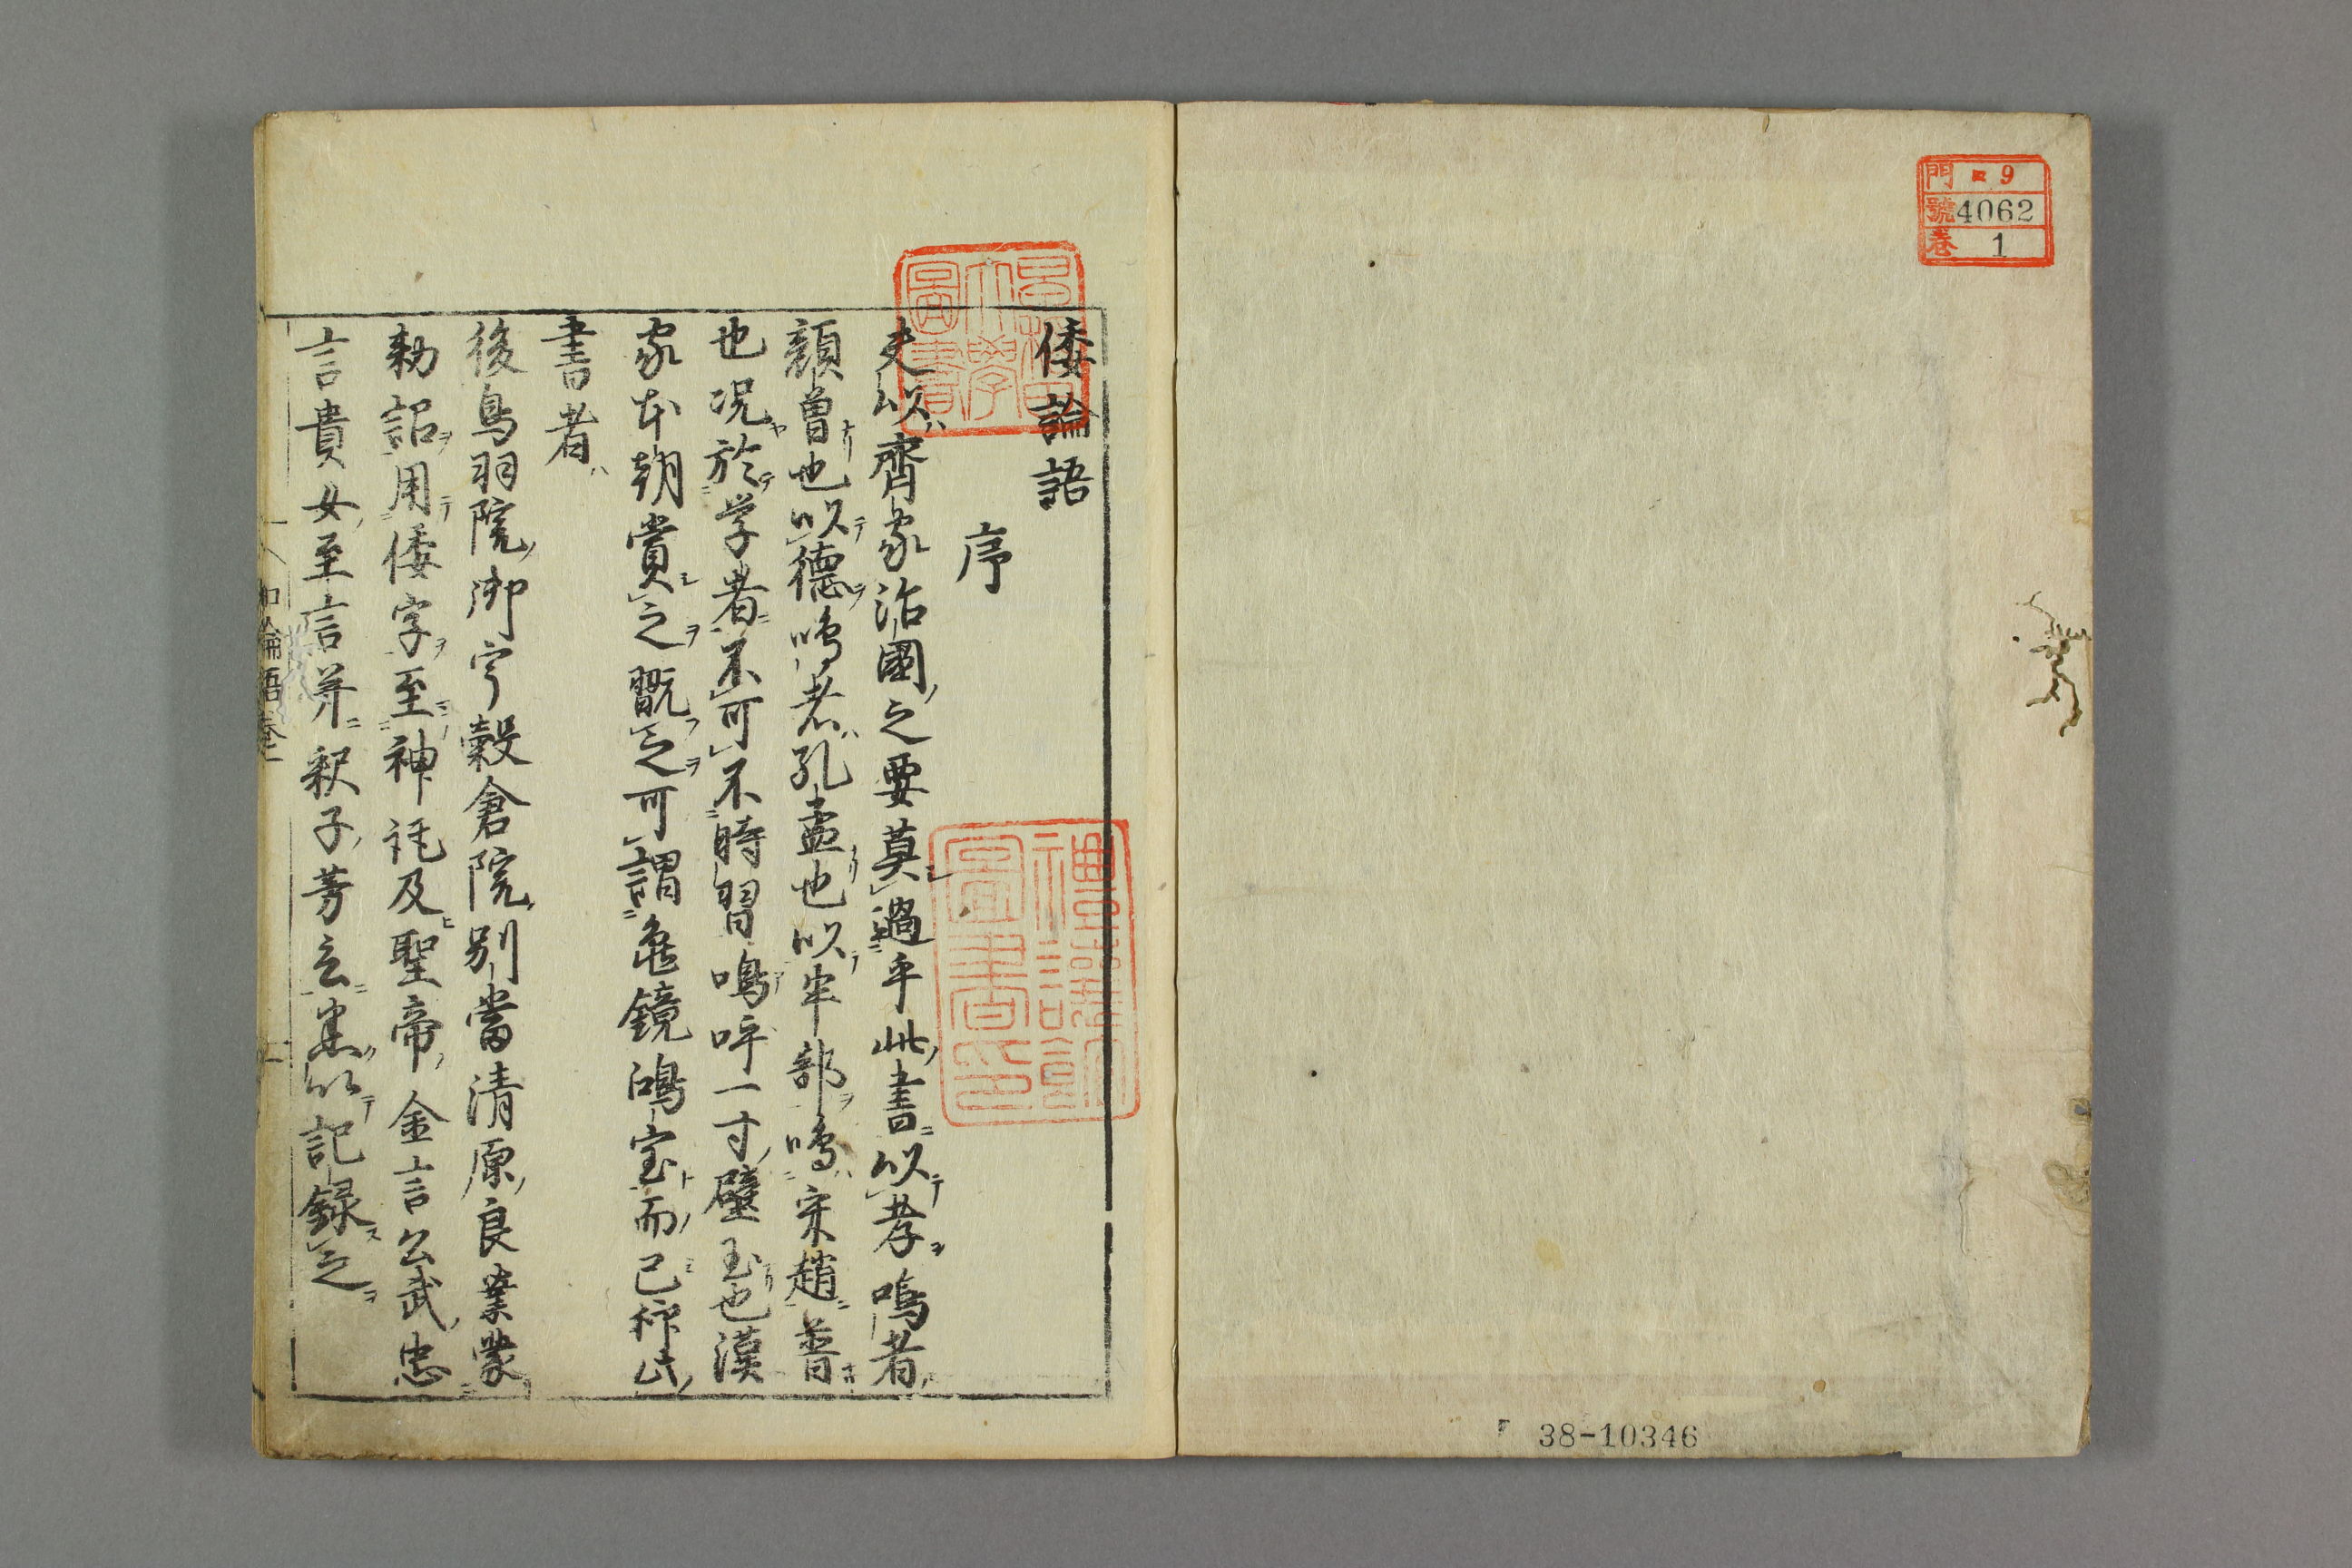 門 ロ 9
號 4062
卷 1
38-10346
早稲田大學圖書
倭論語
序
夫以齊家治國之要莫過乎此書以孝鳴者
顔曽也以德鳴者孔孟也以半部鳴宋趙普
也况於学者不可不時習嗚呼一寸璧玉也漢
家本朝賞之翫之可謂亀鏡鴻宝而已称此
書者
後鳥羽院御宇穀倉院別當清原良業蒙
勅詔用倭字至神託及聖帝金言公武忠
言貴女至言并釈子芳玄悉以記録之
和論語卷一